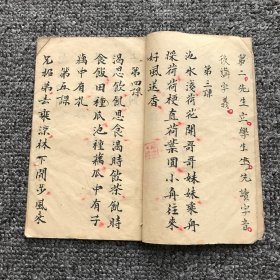 第二 先生立學生坐先讀字音
後講字義
第三課
池水淺荷花開哥哥妹妹乘舟
採荷荷梗直荷葉圓小舟往來
好風送香
第四課
渴思飲飢思食渴時飲茶飢時
食飯田種瓜池種藕瓜中有子
藕中有孔
第五課
兄招弟去乘涼林下閒步風來